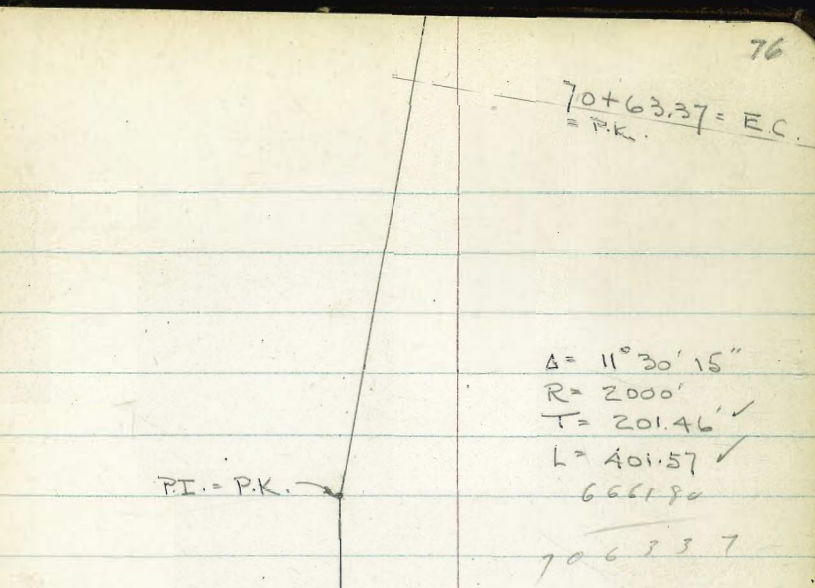 76
70+63.37 = E.C.
= P.K.
Δ = 11° 30' 15"
R = 2000'
T = 201.46' ✓
L = 401.57 ✓
P.I. = P.K.
666180
706337